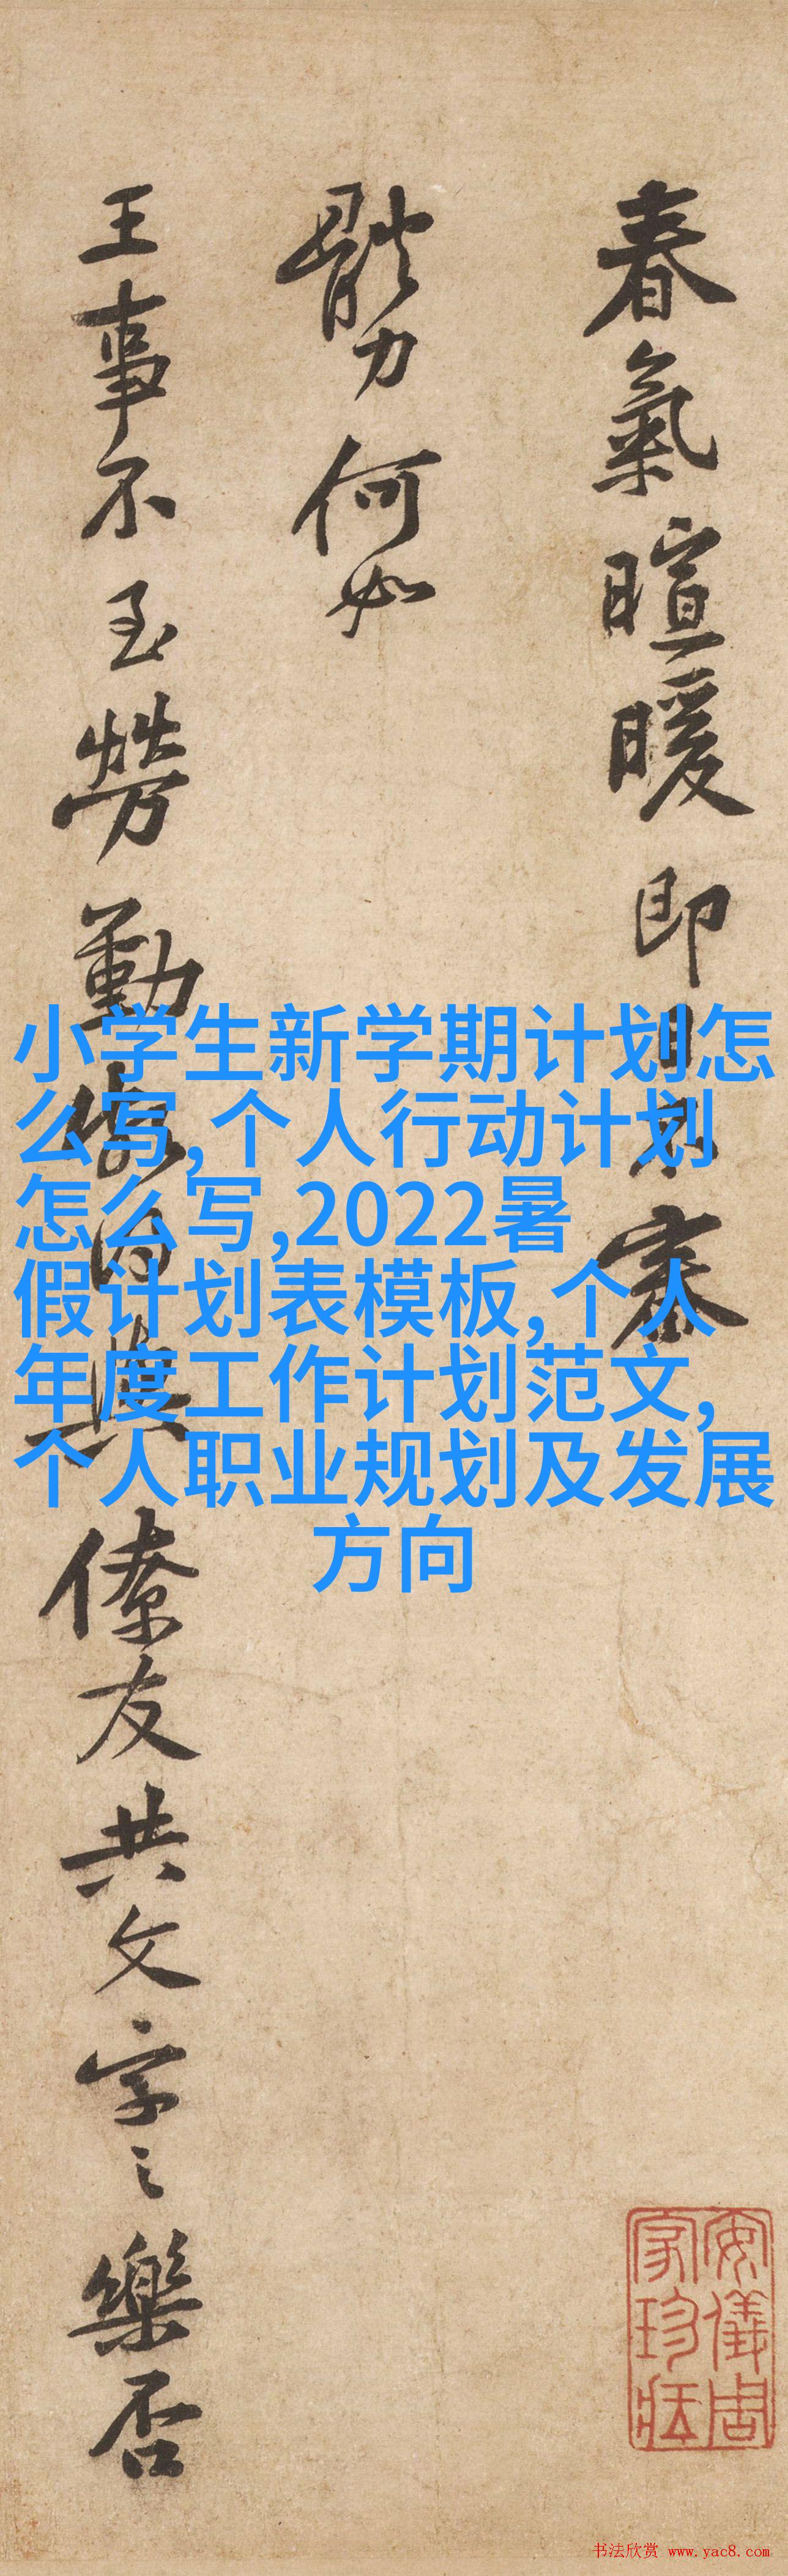 春氣暄暖即日不審
體力何如
王事不至勞勤
僚友共文字之樂否
小学生新学期计划怎
么写,个人行动计划
怎么写,2022暑
假计划表模板,个人
年度工作计划范文,
个人职业规划及发展
方向
安儀周
家珍藏
书法欣赏 www.yac8.com